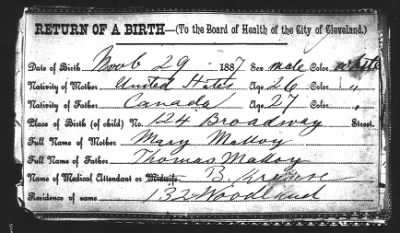 RETURN OF A BIRTH—(To the Board of Health of the City of Cleveland.)
Date of Birth Novb 29 1887 Sex male Color white
Nativity of Mother United States Age 26 Color "
Nativity of Father Canada Age 27 Color "
Place of Birth (of child) No. 124 Broadway Street.
Full Name of Mother Mary Malloy
Full Name of Father Thomas Malloy
Name of Medical Attendant or Midwife. B.
Residence of same 132 Woodland